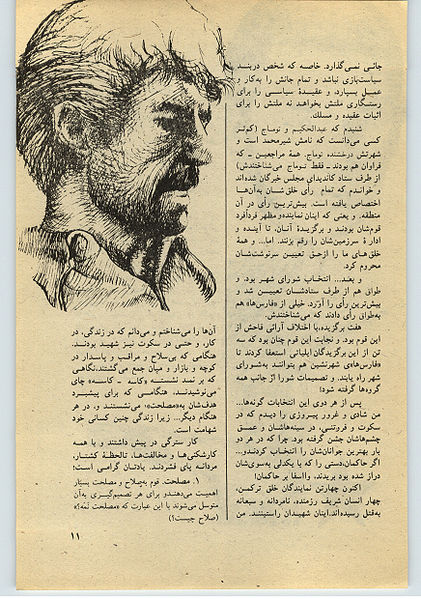 جائی نمی‌گذارد. خاصه که شخص دربند
سیاست‌بازی نباشد و تمام جانش را به‌کار و
عمل بسپارد، و عقیدهٔ سیاسی را برای
رستگاری ملتش بخواهد نه ملتش را برای
اثبات عقیده و مسلك.
شنیدم که عبدالحکیم و توماج (کم‌تر
کسی می‌دانست که نامش شیرمحمد است و
شهرتش درخشنده توماج. همهٔ مراجعین ـ که
فراوان هم بودند ـ فقط توماج می‌شناختندش)
از طرف ستاد کاندیدای مجلس خبرگان شده‌اند
و خواندم که تمام رأی خلق‌شان به‌آن‌ها
اختصاص یافته است. بیش‌ترین رأی در آن
منطقه. و یعنی که اینان نماینده‌ومظهر فردافرد
قوم‌شان بودند و برگزیدهٔ آنان، تا آینده و
ادارهٔ سرزمین‌شان را رقم بزنند. اما... و همهٔ
خلق‌های ما را ازحق تعیین سرنوشت‌شان
محروم کرد.
و بعد... انتخاب شورای شهر بود. و
طواق هم از طرف ستادشان تعیین شد و
بیش‌ترین رأی را آورد. خیلی از «فارس‌ها» هم
به‌طواق رأی دادند که می‌شناختندش.
هفت برگزیده، با اختلاف آرائی فاحش از
این قوم بود. و نجابت این قوم چنان بود که سه
تن از این برگزیدگان ایلیاتی استعفا کردند تا
«فارس‌ها»ی شهرنشین هم بتوانند به‌شورای
شهر راه یابند. و تصمیمات شورا از جانب همه
گروه‌ها گرفته شود!
پس از هر دوی این انتخابات گونه‌ها...
من شادی و غرور پیروزی را دیدم که در
سکوت و فروتنی، در سینه‌هاشان و عمق
چشم‌هاشان جشن گرفته بود. چرا که در هر دو
بار بهترین جوانان‌شان را انتخاب کردندو...
اگر حاکمان، دستی را که با یکدلی به‌سوی‌شان
دراز شده بود بریدند، وااسفا بر حاکمان!
اکنون چهارتن نمایندگان خلق ترکمن،
چهار انسان شریف رزمنده، نامردانه و سبعانه
به‌قتل رسیده‌اند. اینان شهیدان راستینند. من
آن‌ها را می‌شناختم و می‌دانم که در زندگی، در
کار، و حتی در سکوت نیز شهید بودند.
هنگامی که بی‌سلاح و مراقب و پاسدار در
کوچه و بازار و میان جمع می‌گشتند، نگاهی
که بر نمد نشسته «کاسه ـ کاسه» چای
می‌نوشیدند، هنگامی که برای پیشبرد
هدف‌شان به«مصلحت»¹ می‌نشستند و، در هر
هنگام دیگر... زیرا زندگی چنین کسانی خود
شهامت است.
کار سترگی در پیش داشتند و با همه
کارشکنی‌ها و مخالفت‌ها، تالحظهٔ کشتار،
مردانه پای فشردند. یادتان گرامی است!
۱. مصلحت. قوم به‌صلاح و مصلحت بسیار
اهمیت می‌دهندو برای هر تصمیم‌گیری به‌آن
متوسل می‌شوند با این عبارت که «مصلحت نمه؟»
(صلاح چیست؟)
۱۱